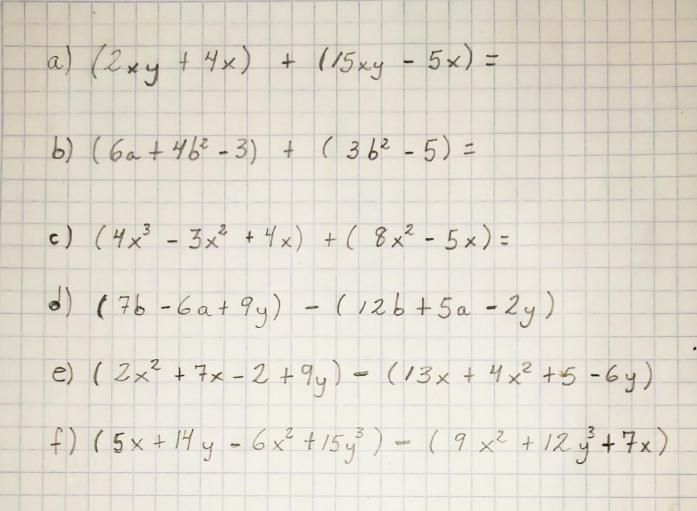 a) (2xy + 4x) + (15xy - 5x) =
b) (6a + 4b² - 3) + (3b² - 5) =
c) (4x³ - 3x² + 4x) + (8x² - 5x) =
d) (7b - 6a + 9y) - (12b + 5a - 2y)
e) (2x² + 7x - 2 + 9y) - (13x + 4x² + 5 - 6y)
f) (5x + 14y - 6x² + 15y³) - (9x² + 12y³ + 7x)